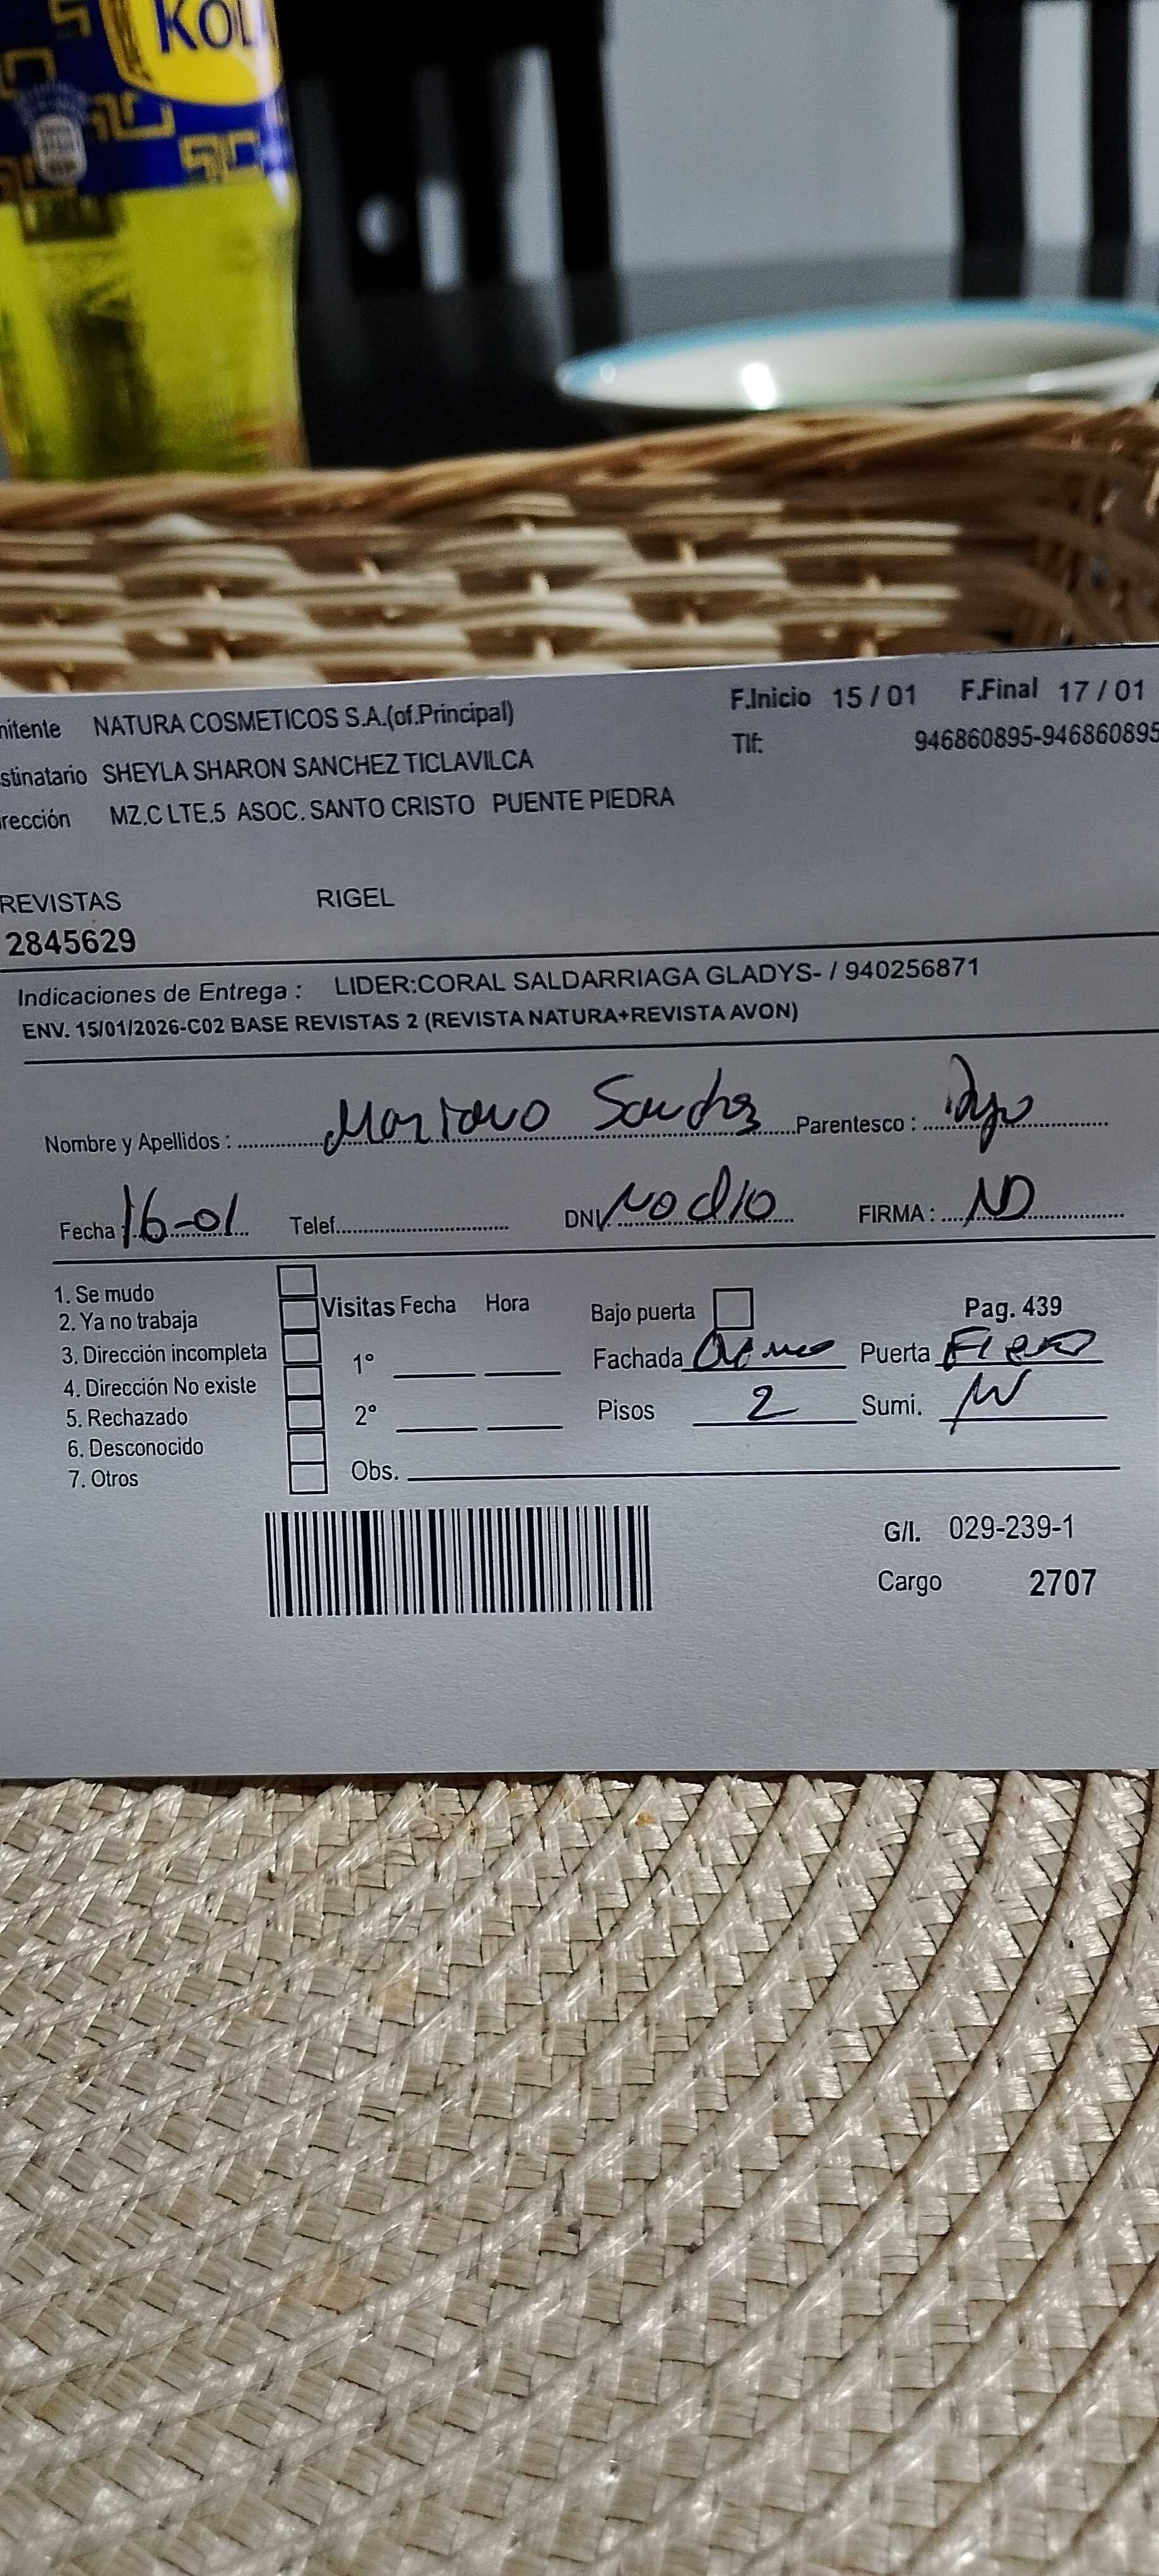 KOL
nitente NATURA COSMETICOS S.A.(of.Principal) F.Inicio 15 / 01 F.Final 17 / 01
stinatario SHEYLA SHARON SANCHEZ TICLAVILCA Tlf: 946860895-946860895
rección MZ.C LTE.5 ASOC. SANTO CRISTO PUENTE PIEDRA
REVISTAS RIGEL
2845629
Indicaciones de Entrega : LIDER:CORAL SALDARRIAGA GLADYS- / 940256871
ENV. 15/01/2026-C02 BASE REVISTAS 2 (REVISTA NATURA+REVISTA AVON)
Nombre y Apellidos : Mariano Sanchez Parentesco :
Fecha : 16-01 Telef. DNI No dio FIRMA : ND
1. Se mudo
2. Ya no trabaja Visitas Fecha Hora Bajo puerta Pag. 439
3. Dirección incompleta 1° Fachada Puerta Fierro
4. Dirección No existe
5. Rechazado 2° Pisos 2 Sumi.
6. Desconocido
7. Otros Obs.
G/I. 029-239-1
Cargo 2707